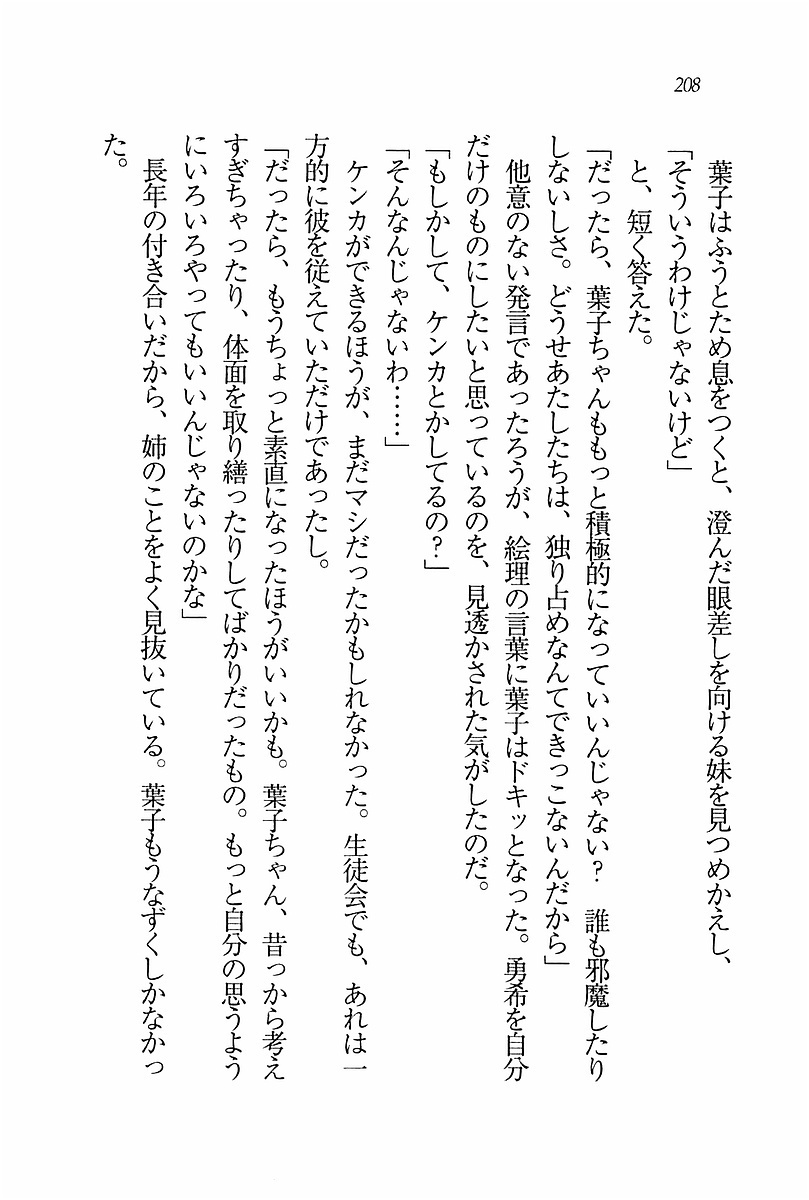 208
葉子はふうとため息をつくと、澄んだ眼差しを向ける妹を見つめかえし、
「そういうわけじゃないけど」
と、短く答えた。
「だったら、葉子ちゃんももっと積極的になっていいんじゃない？　誰も邪魔したり
しないしさ。どうせあたしたちは、独り占めなんてできっこないんだから」
他意のない発言であったろうが、絵理の言葉に葉子はドキッとなった。勇希を自分
だけのものにしたいと思っているのを、見透かされた気がしたのだ。
「もしかして、ケンカとかしてるの？」
「そんなんじゃないわ……」
ケンカができるほうが、まだマシだったかもしれなかった。生徒会でも、あれは一
方的に彼を従えていただけであったし。
「だったら、もうちょっと素直になったほうがいいかも。葉子ちゃん、昔っから考え
すぎちゃったり、体面を取り繕ったりしてばかりだったもの。もっと自分の思うよう
にいろいろやってもいいんじゃないのかな」
長年の付き合いだから、姉のことをよく見抜いている。葉子もうなずくしかなかっ
た。